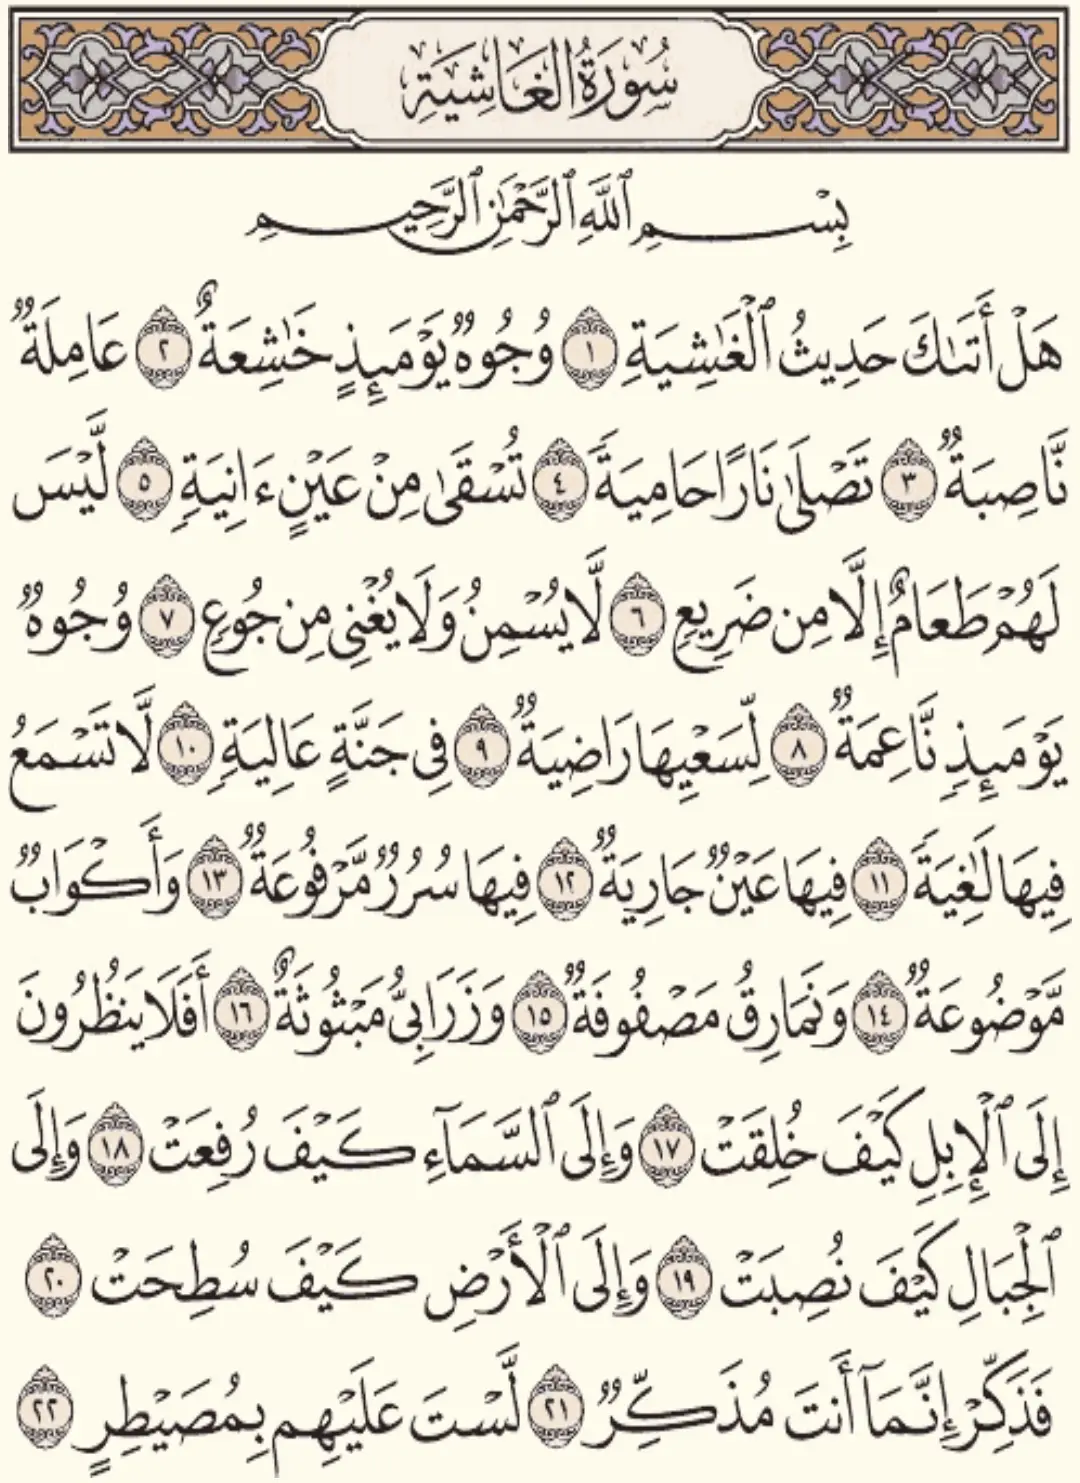 سُورَةُ الْغَاشِيَةِ
بِسْمِ ٱللَّهِ ٱلرَّحْمَٰنِ ٱلرَّحِيمِ
هَلْ أَتَىٰكَ حَدِيثُ ٱلْغَٰشِيَةِ ١ وُجُوهٌ يَوْمَئِذٍ خَٰشِعَةٌ ٢ عَامِلَةٌ
نَّاصِبَةٌ ٣ تَصْلَىٰ نَارًا حَامِيَةً ٤ تُسْقَىٰ مِنْ عَيْنٍ ءَانِيَةٍ ٥ لَّيْسَ
لَهُمْ طَعَامٌ إِلَّا مِن ضَرِيعٍ ٦ لَّا يُسْمِنُ وَلَا يُغْنِى مِن جُوعٍ ٧ وُجُوهٌ
يَوْمَئِذٍ نَّاعِمَةٌ ٨ لِّسَعْيِهَا رَاضِيَةٌ ٩ فِى جَنَّةٍ عَالِيَةٍ ١٠ لَّا تَسْمَعُ
فِيهَا لَٰغِيَةً ١١ فِيهَا عَيْنٌ جَارِيَةٌ ١٢ فِيهَا سُرُرٌ مَّرْفُوعَةٌ ١٣ وَأَكْوَابٌ
مَّوْضُوعَةٌ ١٤ وَنَمَارِقُ مَصْفُوفَةٌ ١٥ وَزَرَابِىُّ مَبْثُوثَةٌ ١٦ أَفَلَا يَنظُرُونَ
إِلَى ٱلْإِبِلِ كَيْفَ خُلِقَتْ ١٧ وَإِلَى ٱلسَّمَآءِ كَيْفَ رُفِعَتْ ١٨ وَإِلَى
ٱلْجِبَالِ كَيْفَ نُصِبَتْ ١٩ وَإِلَى ٱلْأَرْضِ كَيْفَ سُطِحَتْ ٢٠
فَذَكِّرْ إِنَّمَآ أَنتَ مُذَكِّرٌ ٢١ لَّسْتَ عَلَيْهِم بِمُصَيْطِرٍ ٢٢